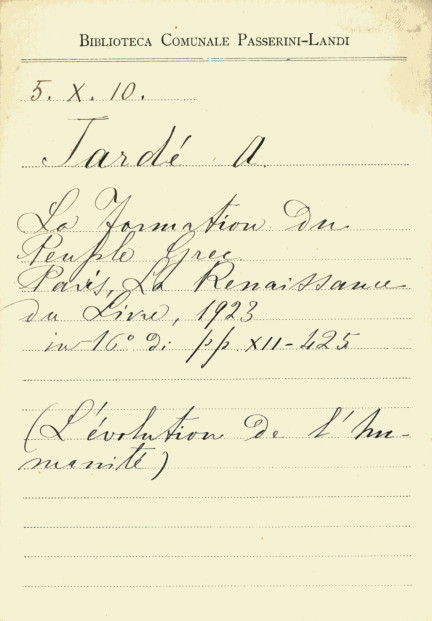 BIBLIOTECA COMUNALE PASSERINI-LANDI
5. X. 10.
Tardé A.
La Formation du
Peuple Grec
Paris, La Renaissance
du Livre, 1923
in 16° di pp XII-425
(L'évolution de l'hu-
manité)